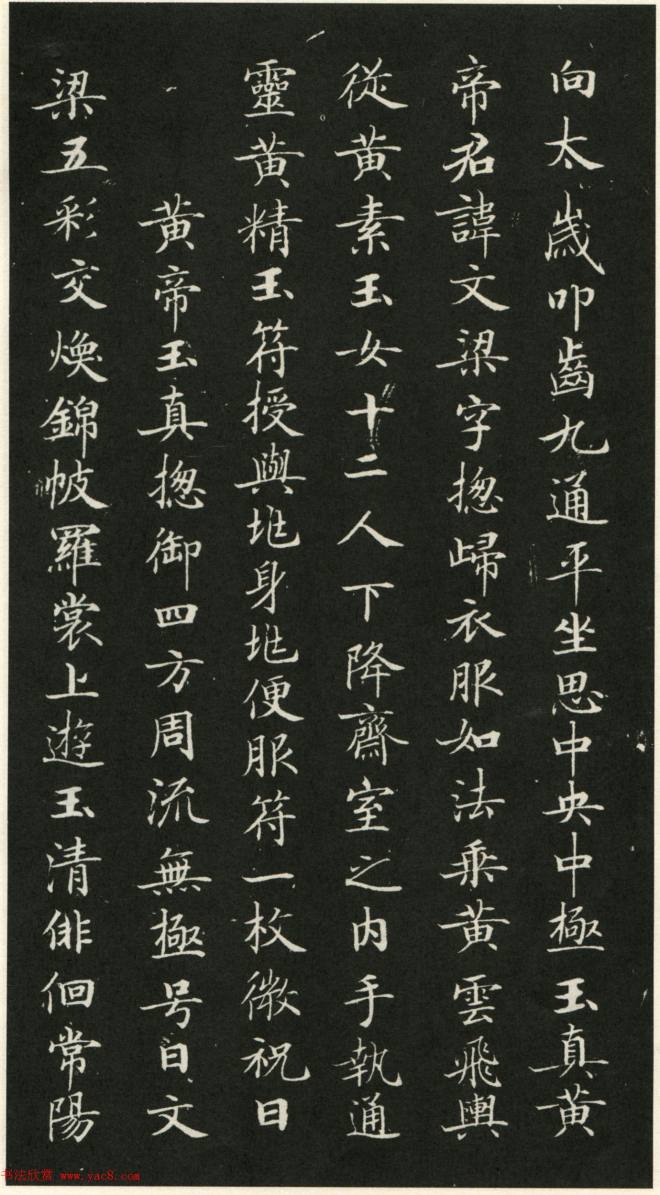 向太歲叩齒九通平坐思中央中極玉真黄
帝君諱文梁字揔歸衣服如法乘黄雲飛輿
從黄素玉女十二人下降齋室之内手執通
靈黄精玉符授與兆身兆便服符一枚微祝曰
黄帝玉真揔御四方周流無極号曰文
梁五彩交煥錦帔羅裳上遊玉清俳佪常陽
书法欣赏 www.yac8.com